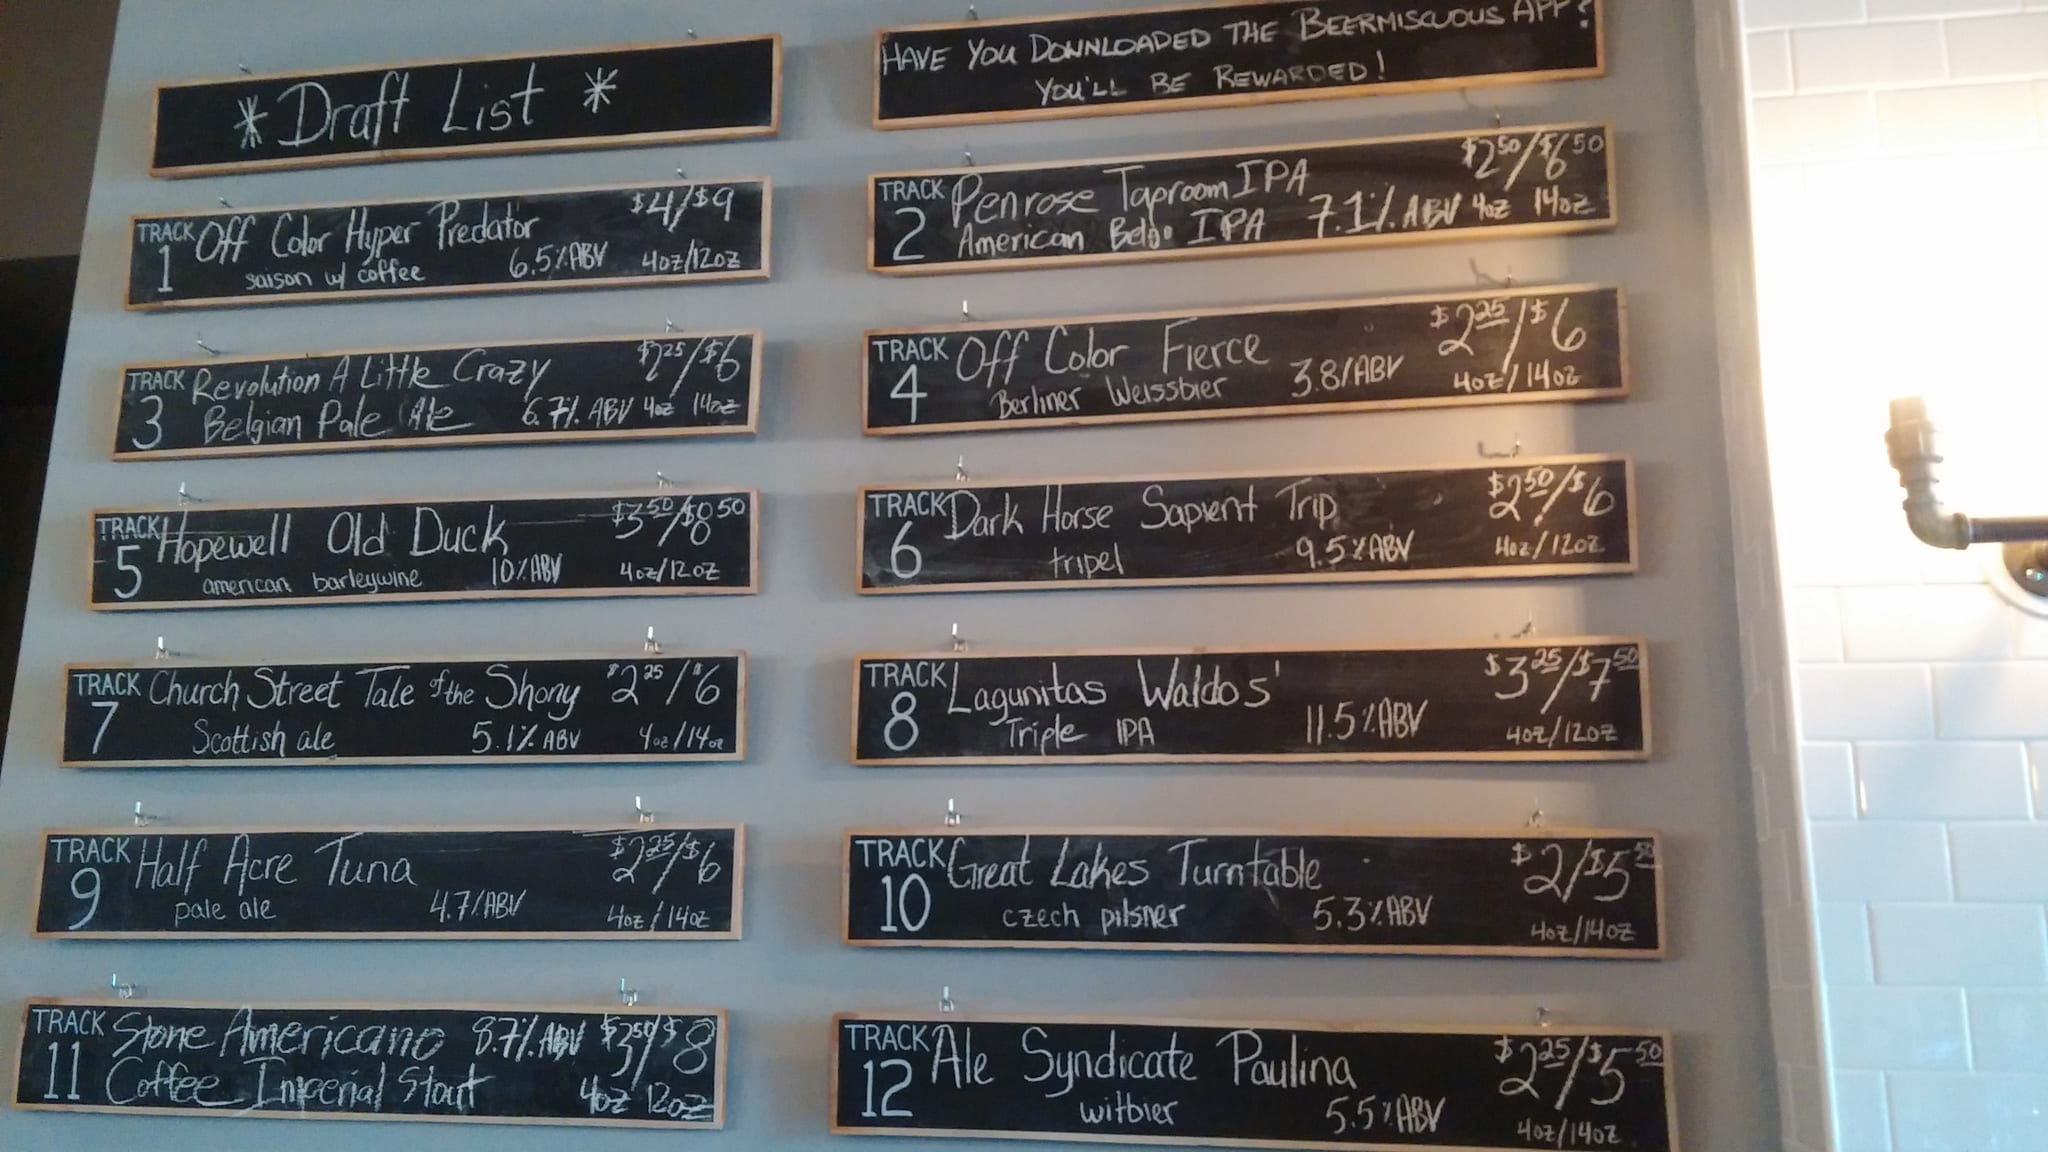 * Draft List *
HAVE YOU DOWNLOADED THE BEERMISCUOUS APP?
YOU'LL BE REWARDED!
TRACK 1 Off Color Hyper Predator $4/$9
saison w/ coffee 6.5% ABV 4oz/12oz
TRACK 2 Penrose Taproom IPA $2.50/$6.50
American Belgo IPA 7.1% ABV 4oz 14oz
TRACK 3 Revolution A Little Crazy $2.25/$6
Belgian Pale Ale 6.7% ABV 4oz 14oz
TRACK 4 Off Color Fierce $2.25/$6
Berliner Weissbier 3.8% ABV 4oz/14oz
TRACK 5 Hopewell Old Duck $3.50/$8.50
american barleywine 10% ABV 4oz/12oz
TRACK 6 Dark Horse Sapient Trip $2.50/$6
tripel 9.5% ABV 4oz/12oz
TRACK 7 Church Street Tale of the Shony $2.25/$6
Scottish ale 5.1% ABV 4oz/14oz
TRACK 8 Lagunitas Waldos' $3.25/$7.50
Triple IPA 11.5% ABV 4oz/12oz
TRACK 9 Half Acre Tuna $2.25/$6
pale ale 4.7% ABV 4oz/14oz
TRACK 10 Great Lakes Turntable $2/$5.50
czech pilsner 5.3% ABV 4oz/14oz
TRACK 11 Stone Americano 8.7% ABV $3.50/$8
Coffee Imperial Stout 4oz 12oz
TRACK 12 Ale Syndicate Paulina $2.25/$5.50
witbier 5.5% ABV 4oz/14oz